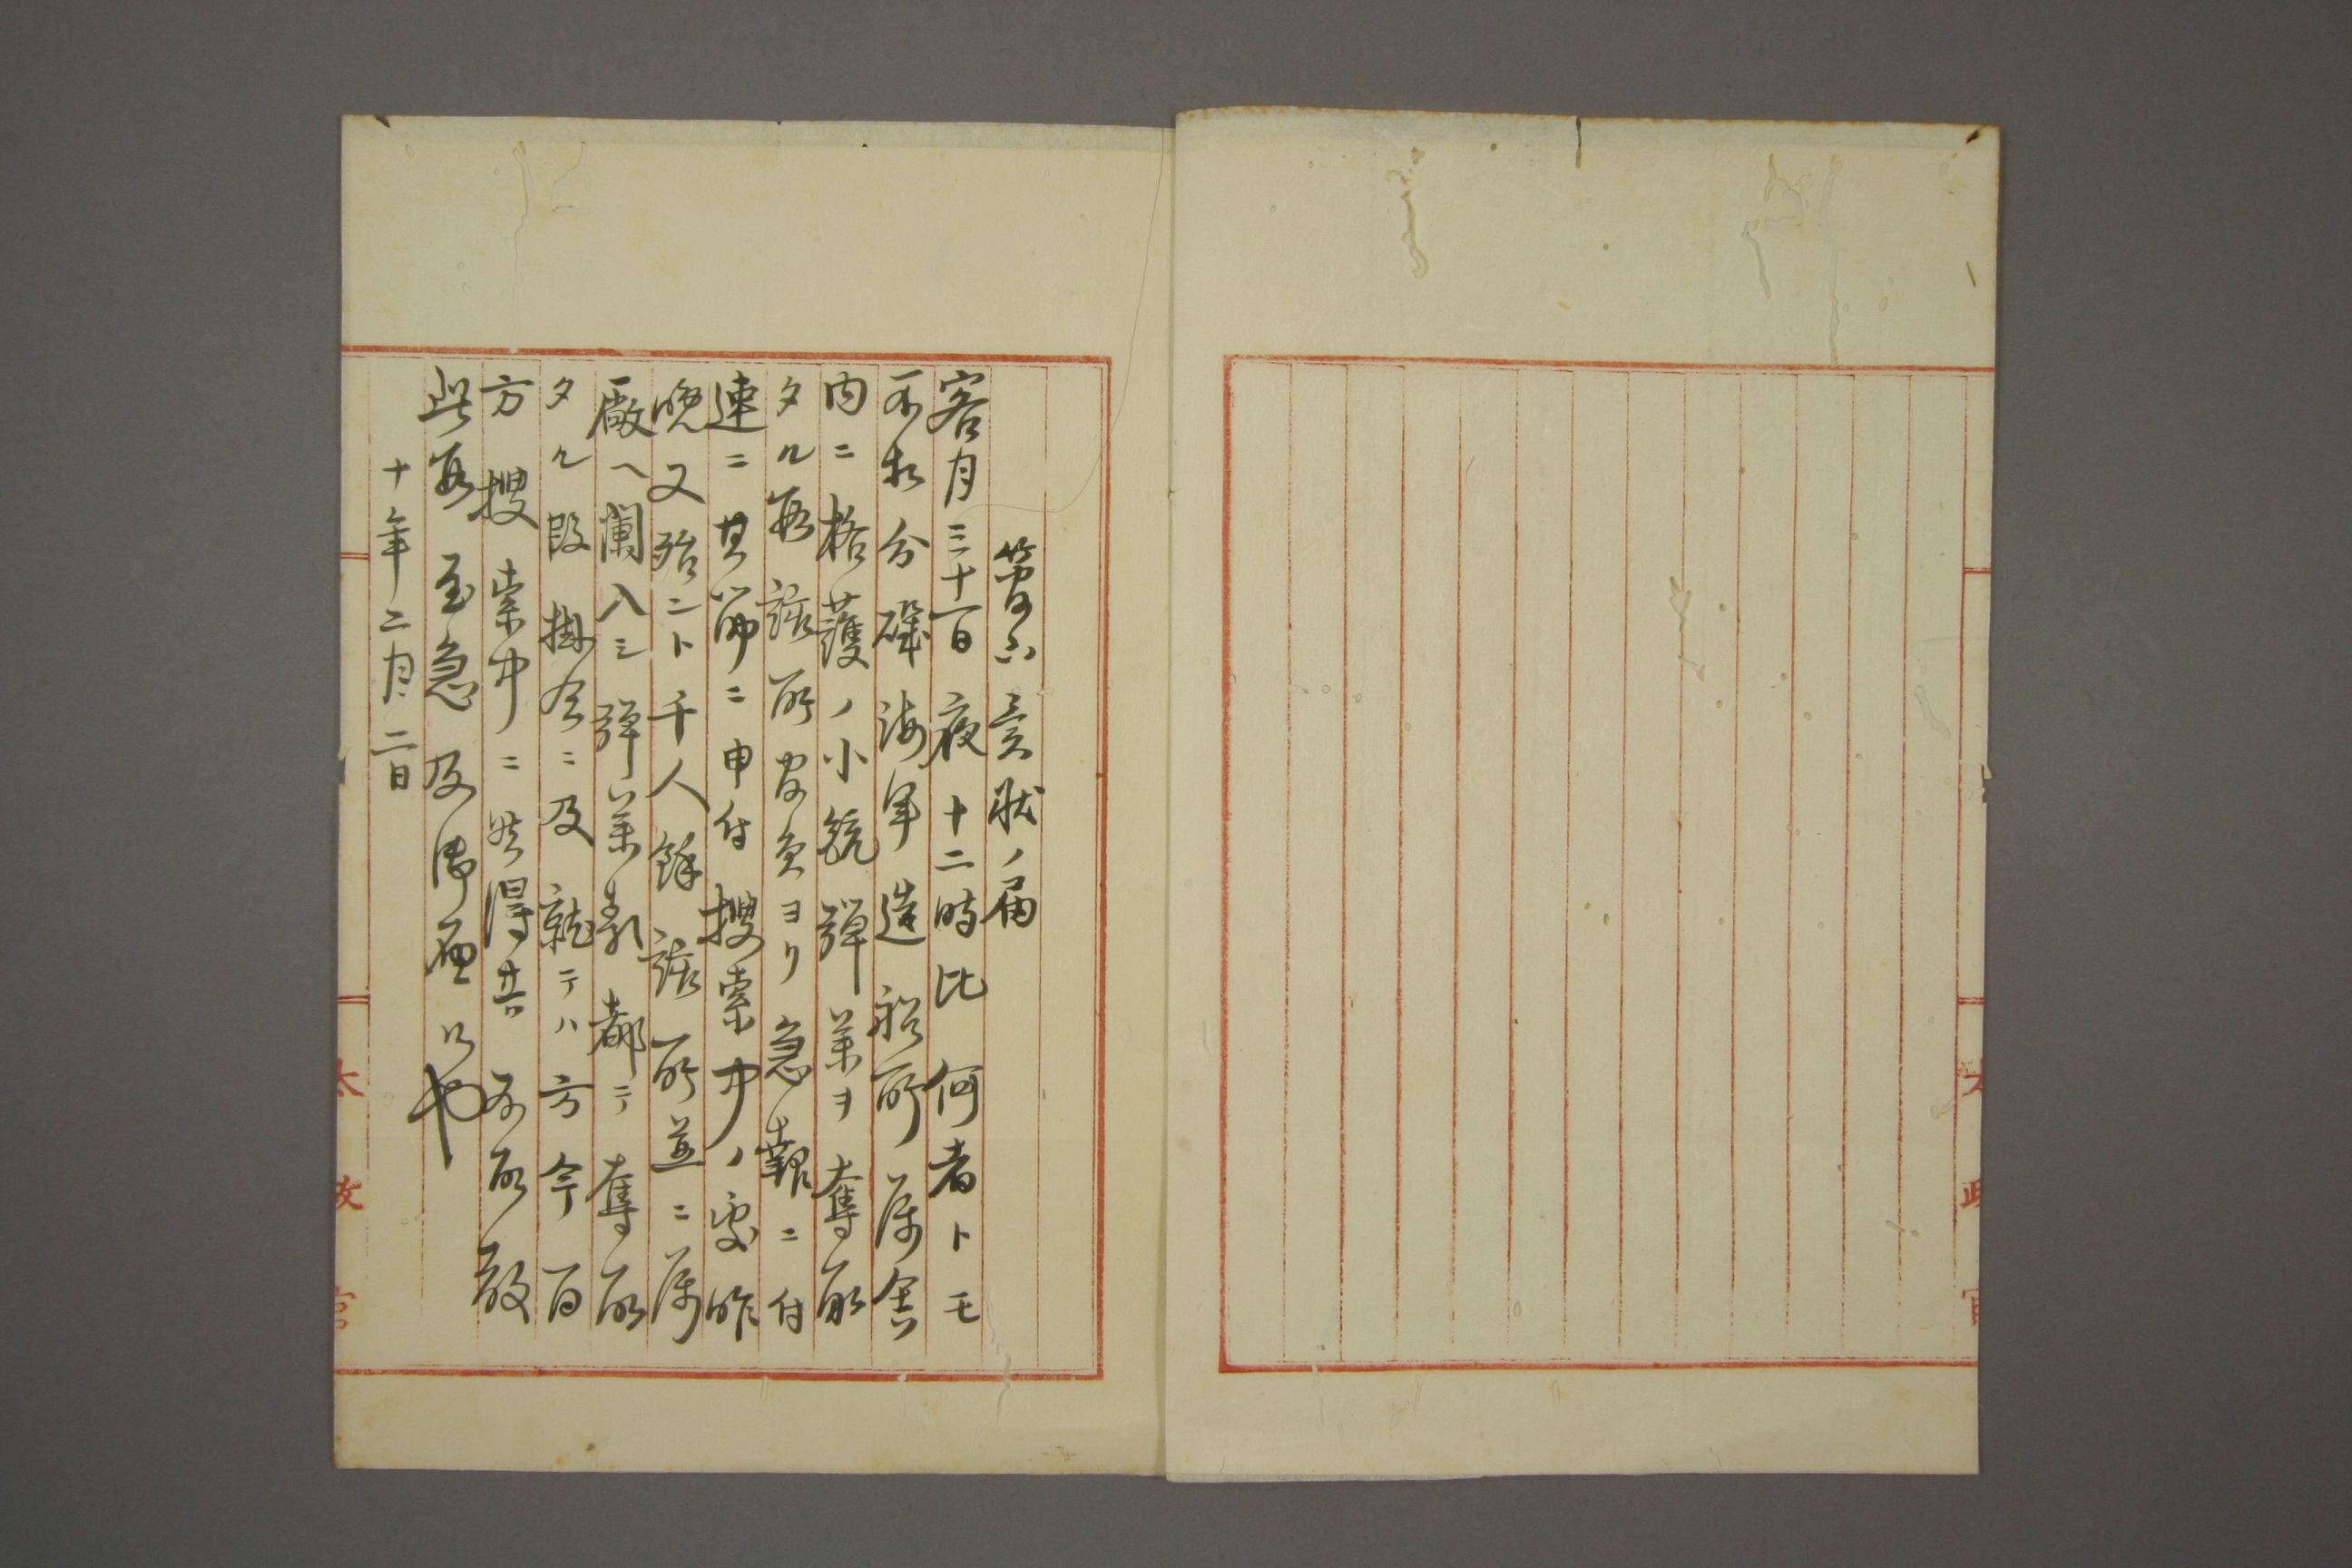 管下景状ノ届
客月三十一日夜十二時比何者トモ
不相分磯海軍造船所属舎
内ニ格護ノ小銃弾薬ヲ奪取
タル段該所官員ヨリ急報ニ付
速ニ其筋ニ申付捜索中ノ処昨
晩又殆ント千人餘該所並ニ属
廠ヘ闌入シ弾薬剽都テ奪取
タル段掛合ニ及就テハ方今百
方捜索中ニ候得共不取敢
此段至急及御届候也
十年二月二日
太政官
太政官